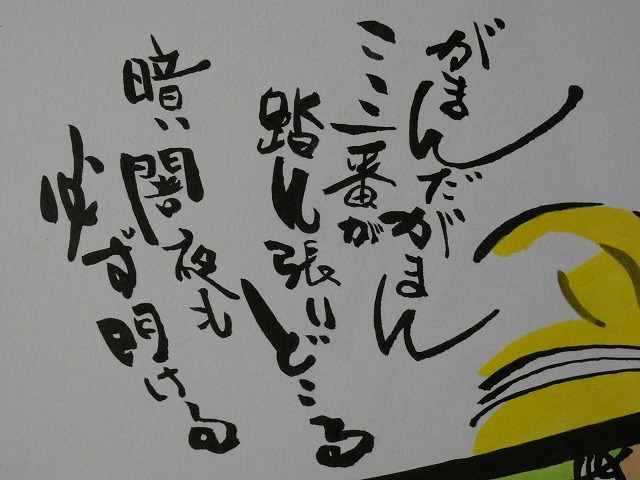 がまんだがまん
ここ一番が
踏ん張りどころ
暗い闇夜も
必ず明ける